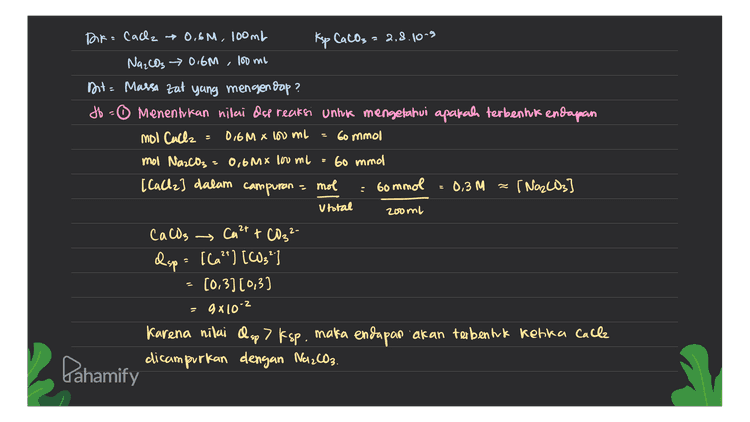 Dik = CaCl₂ → 0,6M, 100 mL Ksp CaCO₃ = 2,8.10⁻⁹
Na₂CO₃ → 0,6M, 100 mL
Dit = Massa zat yang mengendap?
db = ① Menentukan nilai Qsp reaksi untuk mengetahui apakah terbentuk endapan
mol CaCl₂ = 0,6M x 100 mL = 60 mmol
mol Na₂CO₃ = 0,6M x 100 mL = 60 mmol
[CaCl₂] dalam campuran = mol / V total = 60 mmol / 200 mL = 0,3 M ≈ [Na₂CO₃]
CaCO₃ → Ca²⁺ + CO₃²⁻
Qsp = [Ca²⁺] [CO₃²⁻]
= [0,3] [0,3]
= 9x10⁻²
Karena nilai Qsp > Ksp, maka endapan akan terbentuk ketika CaCl₂
dicampurkan dengan Na₂CO₃.
Pahamify